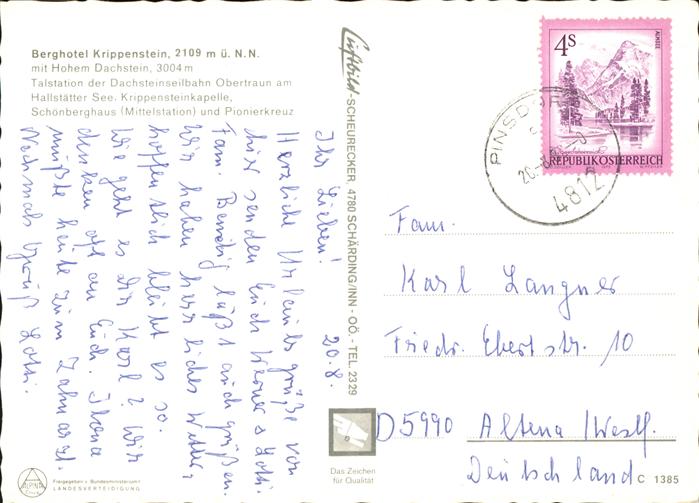 Berghotel Krippenstein, 2109 m ü. N.N.
mit Hohem Dachstein, 3004 m
Talstation der Dachsteinseilbahn Obertraun am
Hallstätter See. Krippensteinkapelle,
Schönberghaus (Mittelstation) und Pionierkreuz
Luftbild-SCHEURECKER, 4780 SCHÄRDING/INN - OÖ. - TEL. 2329
20.8.
Ihr Lieben!
Herzliche Urlaubsgrüße von
hier senden Euch Werner & Lotti.
Fam. läßt auch grüßen.
Wir haben herrliches Wetter
hoffentlich bleibt es so.
Wie geht es Dir Karl? Wir
denken oft an Euch. Ilona
mußte heute zum Zahnarzt.
Nochmals Gruß Lotti.
4S
ALMSEE
REPUBLIK ÖSTERREICH
PINSDORF
4812
Fam.
Karl Langner
Friedr. Ebertstr. 10
D5990 Altena /Westf.
Deutschland
Das Zeichen
für Qualität
C 1385
ALPINA
Freigegeben v. Bundesministerium f.
LANDESVERTEIDIGUNG